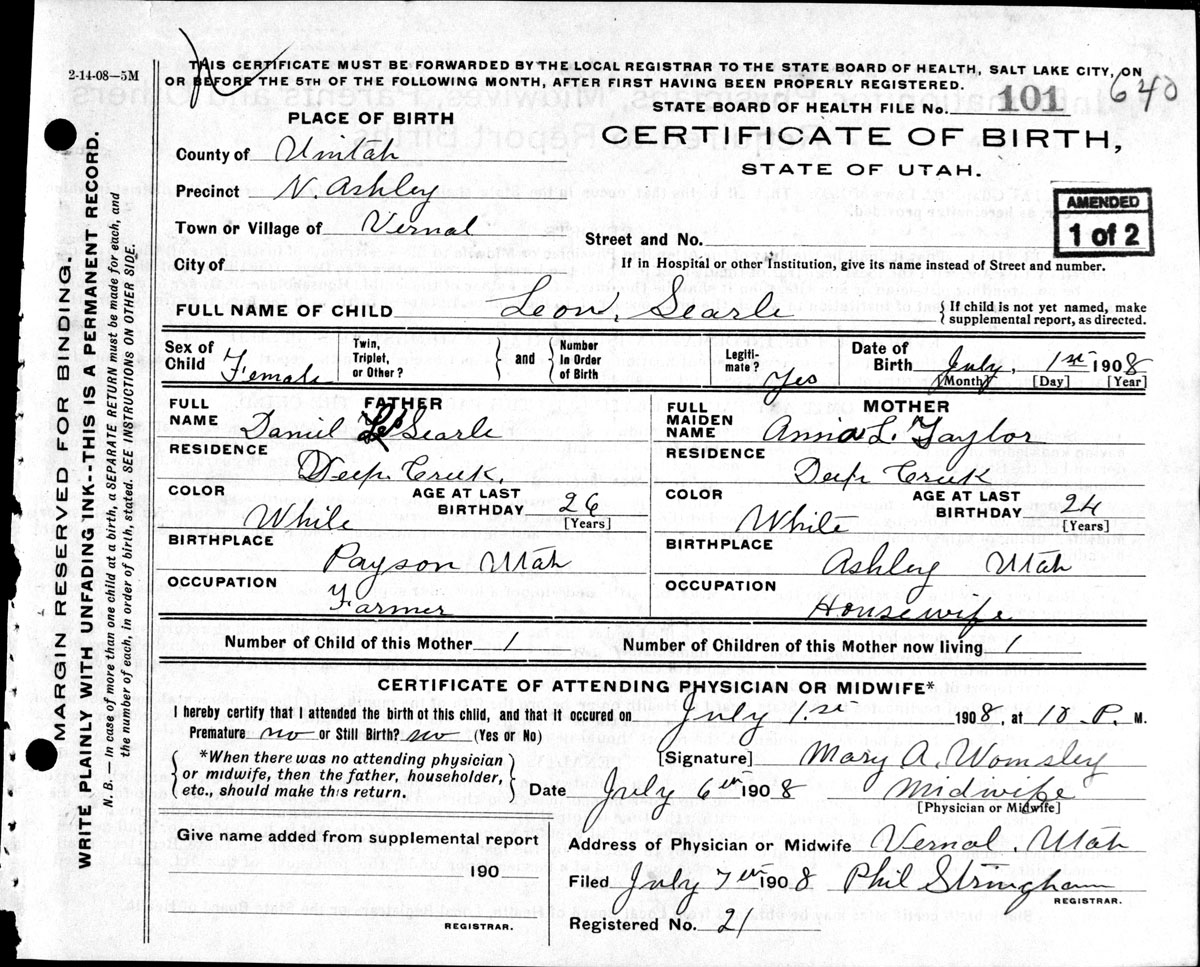 2-14-08—5M
THIS CERTIFICATE MUST BE FORWARDED BY THE LOCAL REGISTRAR TO THE STATE BOARD OF HEALTH, SALT LAKE CITY, ON
OR BEFORE THE 5TH OF THE FOLLOWING MONTH, AFTER FIRST HAVING BEEN PROPERLY REGISTERED.
640
STATE BOARD OF HEALTH FILE No. 101
PLACE OF BIRTH
CERTIFICATE OF BIRTH,
STATE OF UTAH.
County of Uintah
Precinct N. Ashley
AMENDED
1 of 2
Town or Village of Vernal
Street and No.
City of
{ If in Hospital or other Institution, give its name instead of Street and number.
FULL NAME OF CHILD Leon, Searle
{ If child is not yet named, make
supplemental report, as directed.
Sex of Child Female
Twin, Triplet, or Other?
{ and }
Number In Order of Birth
Legiti-mate? Yes
Date of Birth July, 1st 1908
[Month] [Day] [Year]
FATHER
FULL NAME Daniel Searle
RESIDENCE Deep Creek.
COLOR White
AGE AT LAST BIRTHDAY 26
[Years]
BIRTHPLACE Payson Utah
OCCUPATION Farmer
MOTHER
FULL MAIDEN NAME Anna L. Taylor
RESIDENCE Deep Creek
COLOR White
AGE AT LAST BIRTHDAY 24
[Years]
BIRTHPLACE Ashley Utah
OCCUPATION Housewife
Number of Child of this Mother 1 Number of Children of this Mother now living 1
CERTIFICATE OF ATTENDING PHYSICIAN OR MIDWIFE*
I hereby certify that I attended the birth of this child, and that it occured on July 1.st 1908, at 10 P. M.
Premature no or Still Birth? no (Yes or No)
{ *When there was no attending physician
or midwife, then the father, householder,
etc., should make this return. }
[Signature] Mary A. Womsley
Date July 6th 1908 Midwife
[Physician or Midwife]
Give name added from supplemental report
190
REGISTRAR.
Address of Physician or Midwife Vernal, Utah
Filed July 7th 1908 Phil Stringham
REGISTRAR.
Registered No. 21
MARGIN RESERVED FOR BINDING.
WRITE PLAINLY WITH UNFADING INK--THIS IS A PERMANENT RECORD.
N. B.—In case of more than one child at a birth, a SEPARATE RETURN must be made for each, and
the number of each, in order of birth, stated. SEE INSTRUCTIONS ON OTHER SIDE.